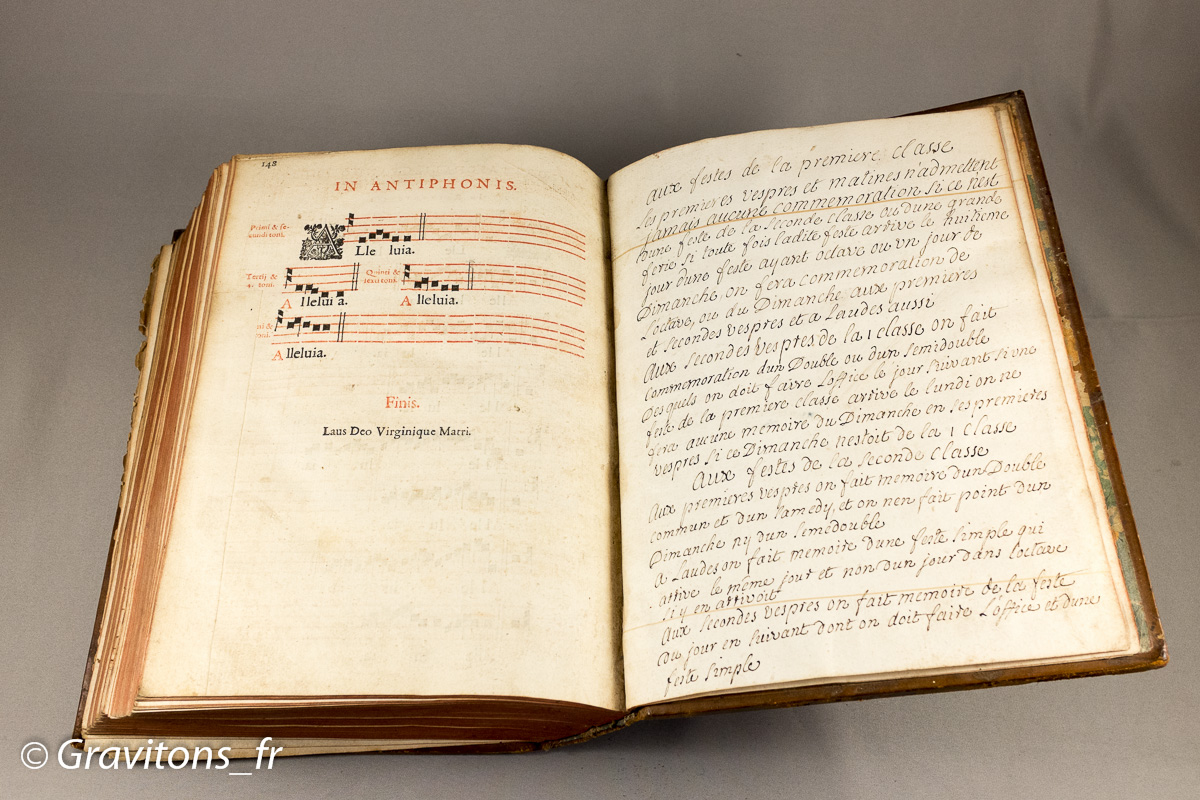 148
IN ANTIPHONIS.
Primi & se-
cundi toni.
ALle luia.
Tertij &
4. toni.
Alleluia.
Quinti &
sexti toni.
Alleluia.
ni &
toni.
Alleluia.
Finis.
Laus Deo Virginique Matri.
aux festes de la premiere classe
les premieres vespres et matines n'admettent
jamais aucune commemoration si ce nest
dune feste de la seconde classe ou dune grande
ferie si toute fois ladite feste arrive le huitieme
jour dune feste ayant octave ou un jour de
Dimanche, on fera commemoration de
loctave, ou du Dimanche aux premieres
et secondes vespres et a Laudes aussi
Aux secondes vespres de la 1 classe on fait
commemoration dun Double ou dun semidouble
Desquels on doit faire Loffice le jour suivant si une
feste de la premiere classe arrive le lundi on ne
fera aucune memoire du Dimanche en ses premieres
vespres si ce Dimanche nestoit de la 1 classe
Aux festes de la seconde classe
Aux premieres vespres on fait memoire dun Double
commun et dun samedy, et on nen fait point dun
Dimanche ny dun semedouble
a Laudes on fait memoire dune feste simple qui
arrive le même jour et non dun jour dans loctave
si y en arrivoit
Aux secondes vespres on fait memoire de la feste
du jour en suivant dont on doit faire Loffice et dune
feste simple
© Gravitons_fr